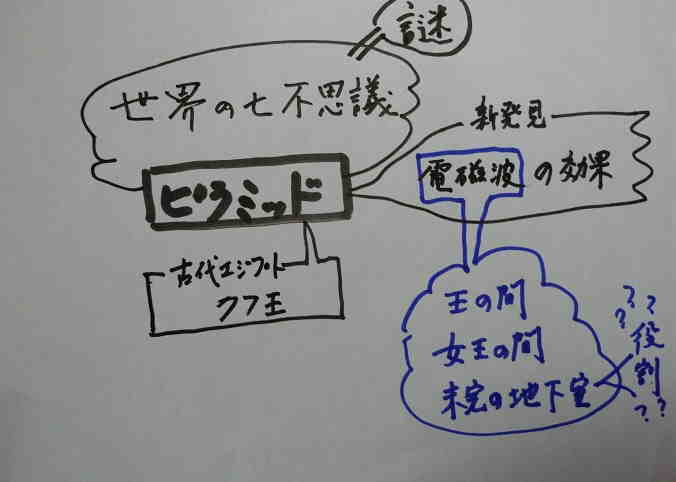 謎
世界の七不思議
新発見
電磁波の効果
ピラミッド
古代エジプト
クフ王
王の間
女王の間
未完の地下室
???
役割
??